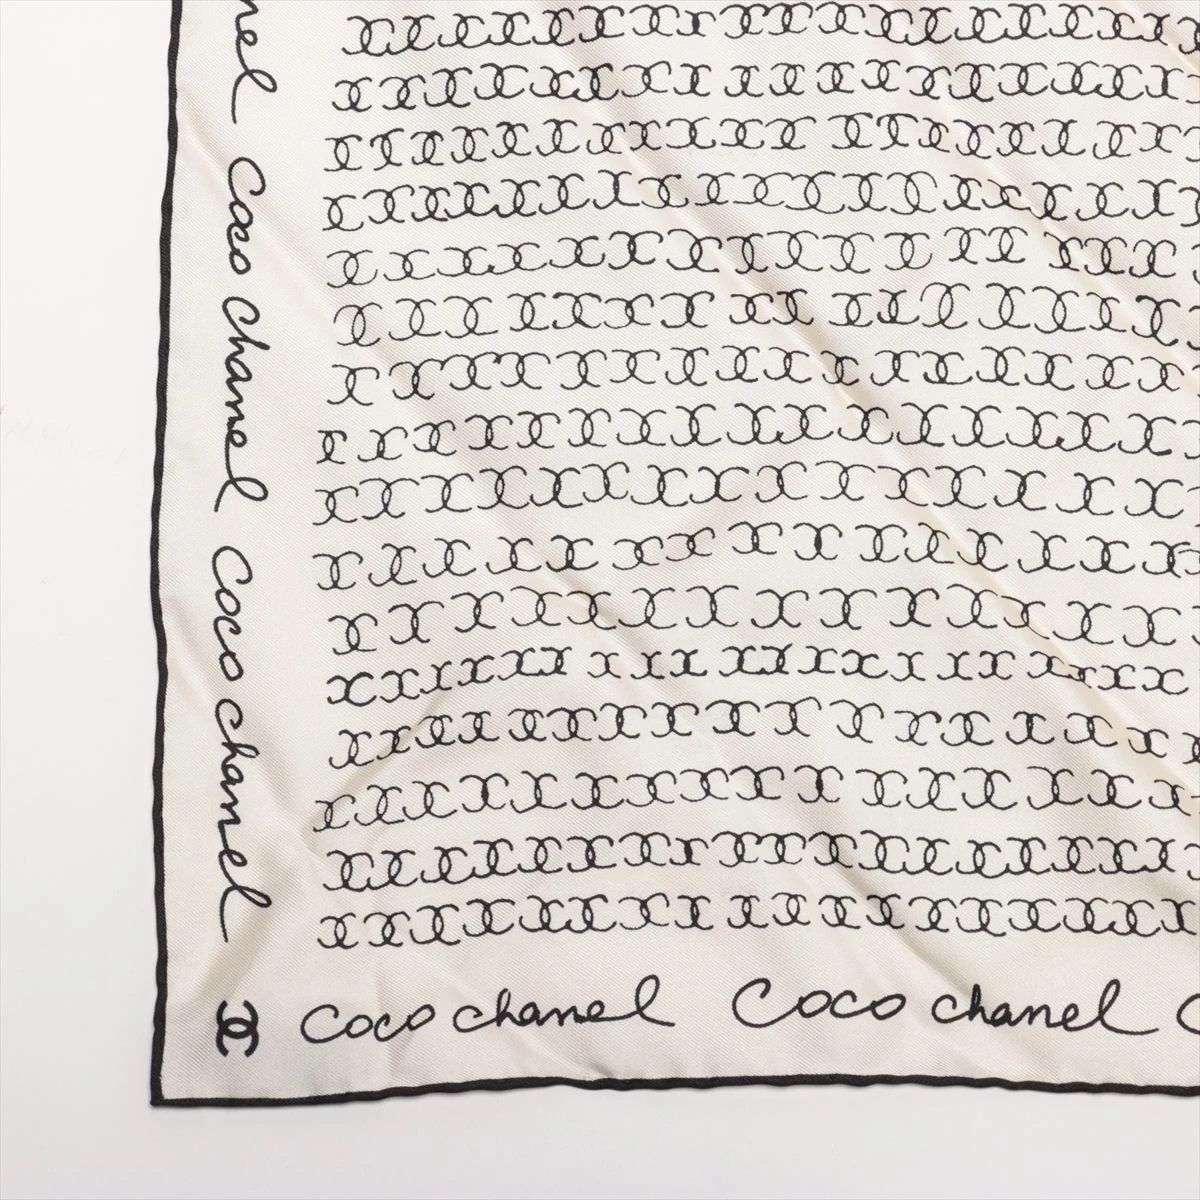 nel
Coco chanel
Coco chanel
Coco chanel Coco chanel C